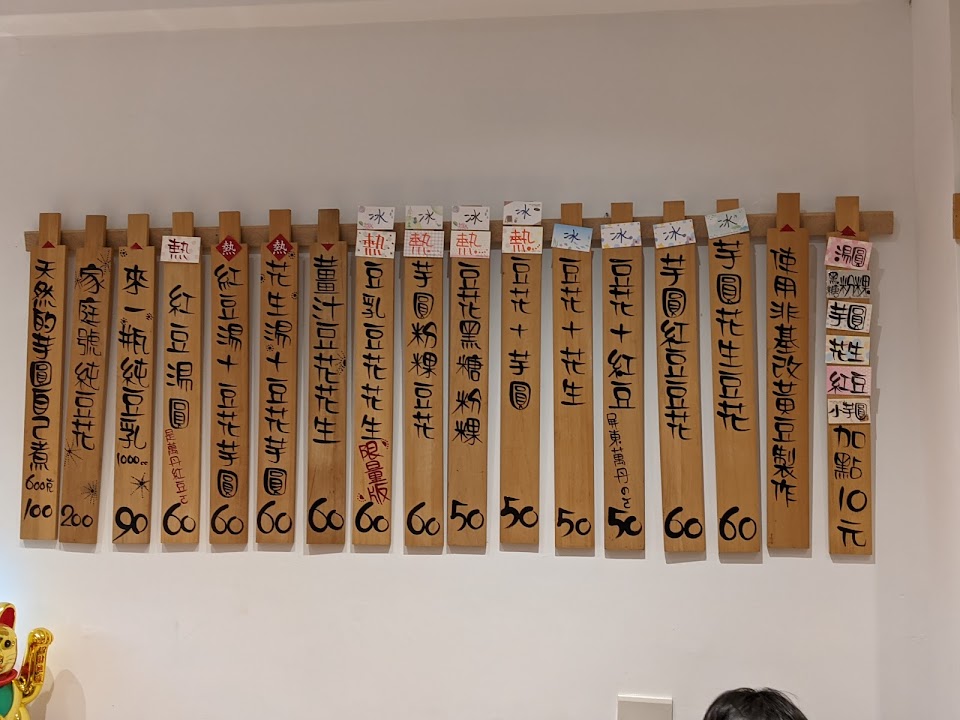 湯圓
黑糖粉粿
芋圓
花生
紅豆
小芋圓
加點10元
使用非基改黃豆製作
冰
芋圓花生豆花
60
冰
芋圓紅豆豆花
60
冰
豆花+紅豆
屏東萬丹の
50
冰
豆花+花生
50
冰
熱
豆花+芋圓
50
冰
熱
豆花黑糖粉粿
50
冰
熱
芋圓粉粿豆花
60
冰
熱
豆乳豆花花生
限量版
60
薑汁豆花花生
60
熱
花生湯+豆花芋圓
60
熱
紅豆湯+豆花芋圓
60
熱
紅豆湯圓
萬丹紅豆
60
來一瓶純豆乳
1000cc
90
家庭號純豆花
200
天然的芋圓自己煮
600克
100